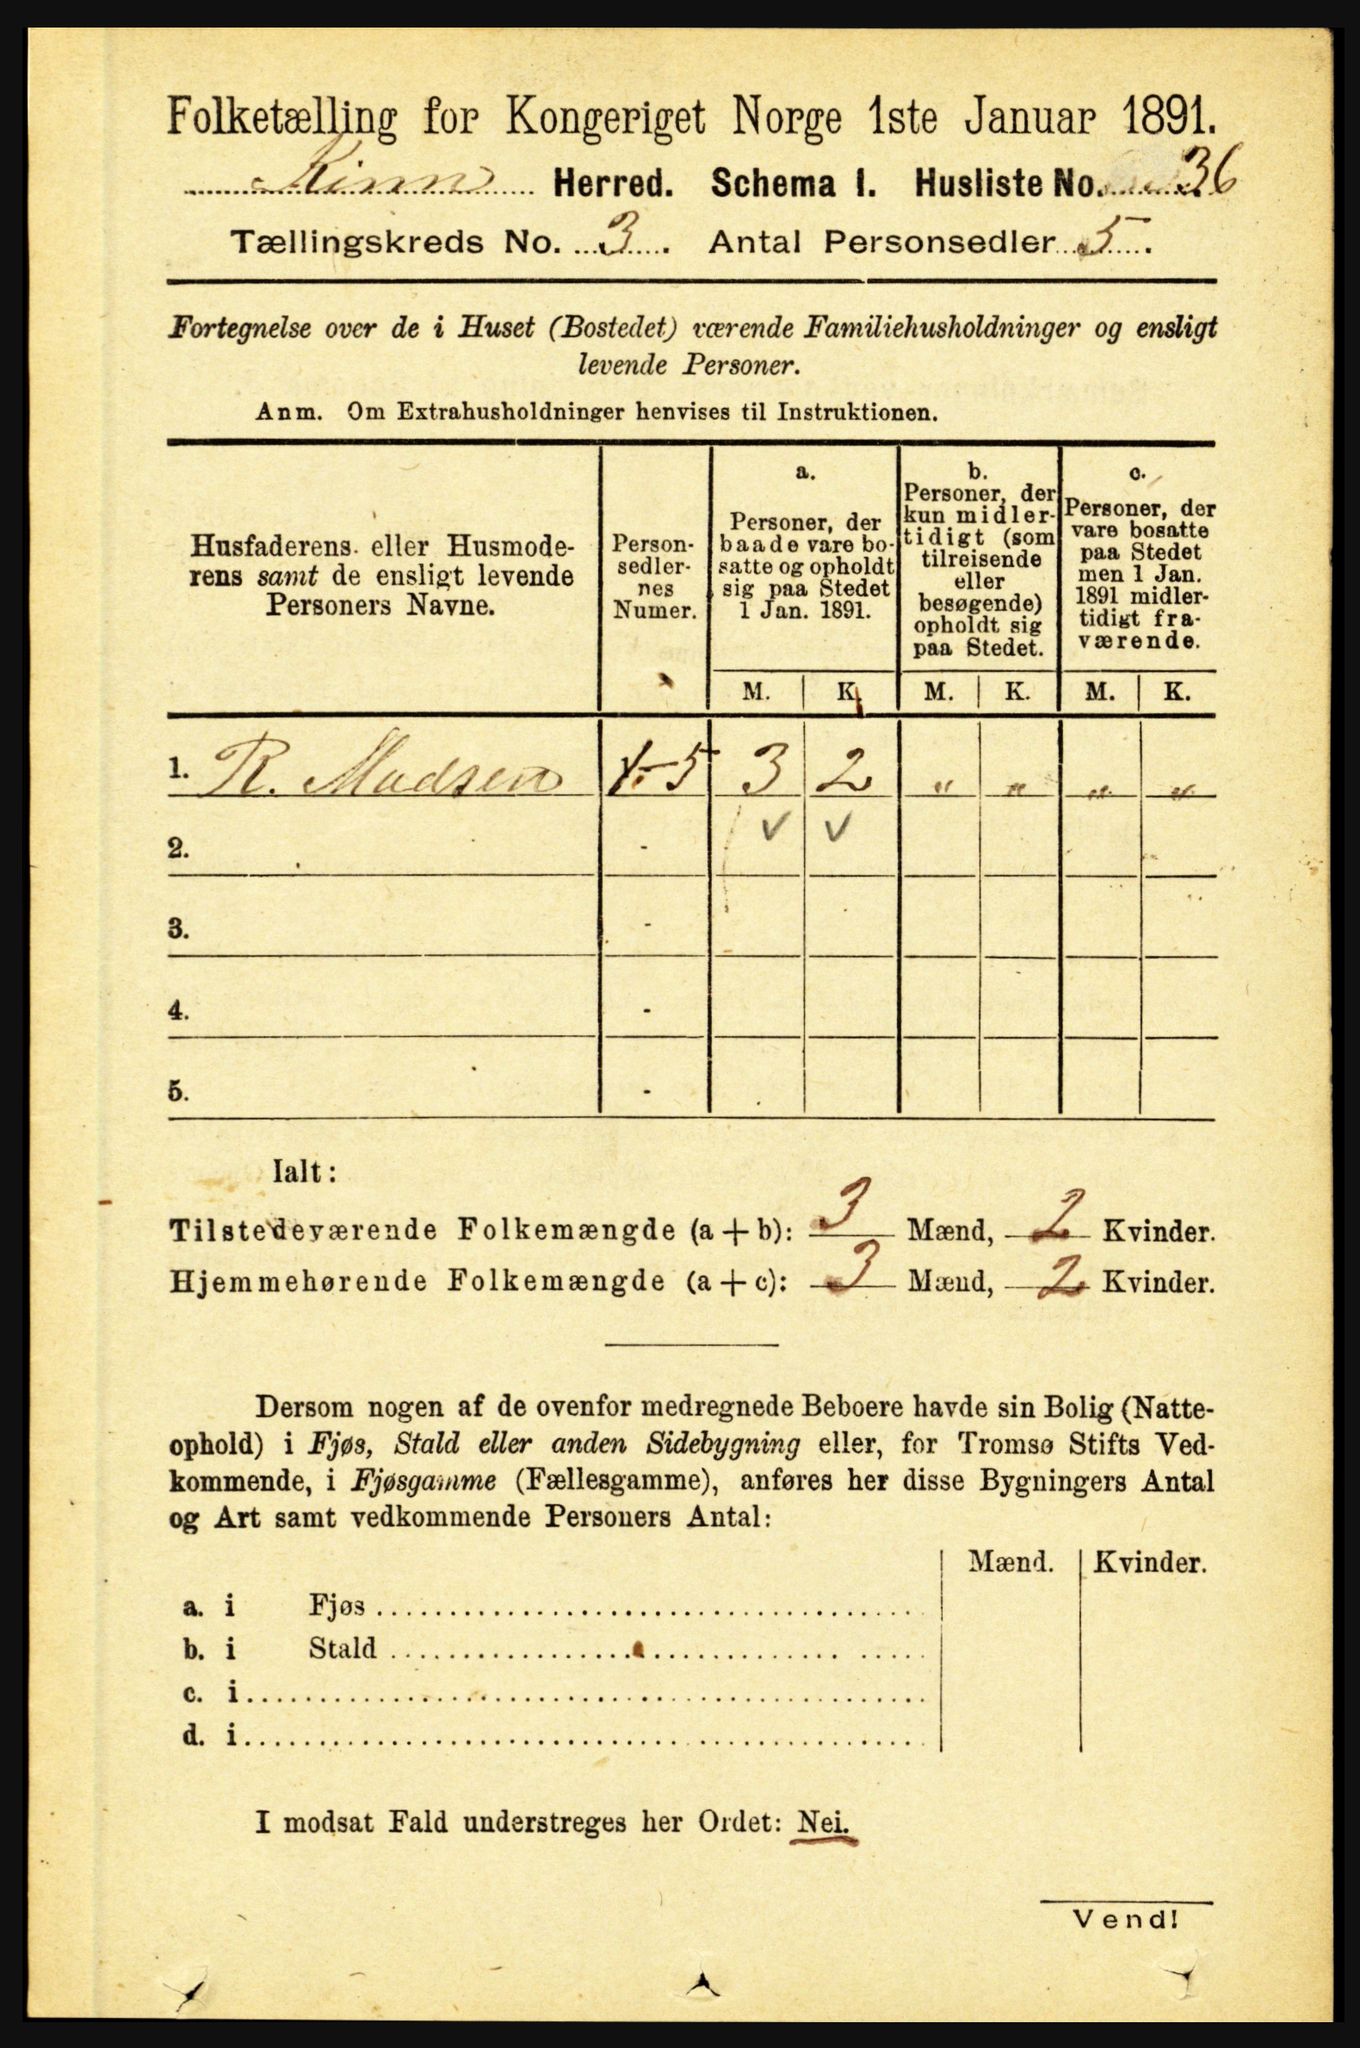 Folketælling for Kongeriget Norge 1ste Januar 1891.
Kinn Herred. Schema I. Husliste No. 36
Tællingskreds No. 3. Antal Personsedler 5.
Fortegnelse over de i Huset (Bostedet) værende Familiehusholdninger og ensligt
levende Personer.
Anm. Om Extrahusholdninger henvises til Instruktionen.
Husfaderens eller Husmode-
rens samt de ensligt levende
Personers Navne.
Person-
sedler-
nes
Numer.
a.
Personer, der
baade vare bo-
satte og opholdt
sig paa Stedet
1 Jan. 1891.
b.
Personer, der
kun midler-
tidigt (som
tilreisende
eller
besøgende)
opholdt sig
paa Stedet.
c.
Personer, der
vare bosatte
paa Stedet
men 1 Jan.
1891 midler-
tidigt fra-
værende.
M. K. M. K. M. K.
1. R. Madsen 1-5 3 2 „ „ „ „
2. - v v
3. -
4. -
5. -
Ialt:
Tilstedeværende Folkemængde (a + b): 3 Mænd, 2 Kvinder.
Hjemmehørende Folkemængde (a + c): 3 Mænd, 2 Kvinder.
Dersom nogen af de ovenfor medregnede Beboere havde sin Bolig (Natte-
ophold) i Fjøs, Stald eller anden Sidebygning eller, for Tromsø Stifts Ved-
kommende, i Fjøsgamme (Fællesgamme), anføres her disse Bygningers Antal
og Art samt vedkommende Personers Antal:
Mænd. Kvinder.
a. i Fjøs
b. i Stald
c. i
d. i
I modsat Fald understreges her Ordet: Nei.
Vend!